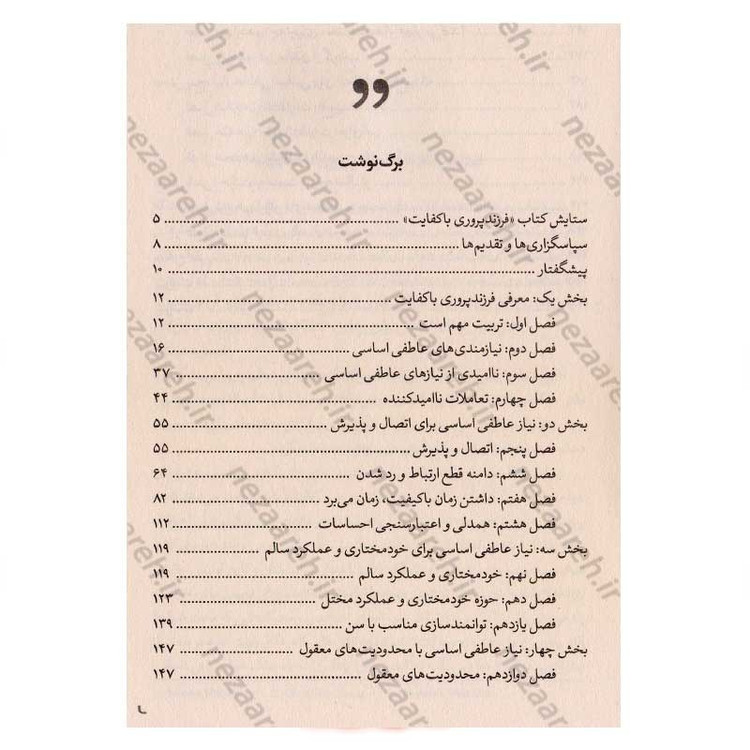 برگ‌نوشت
ستایش کتاب «فرزندپروری باکفایت» ۵
سپاسگزاری‌ها و تقدیم‌ها ۸
پیشگفتار ۱۰
بخش یک: معرفی فرزندپروری باکفایت ۱۲
فصل اول: تربیت مهم است ۱۲
فصل دوم: نیازمندی‌های عاطفی اساسی ۱۶
فصل سوم: ناامیدی از نیازهای عاطفی اساسی ۳۷
فصل چهارم: تعاملات ناامیدکننده ۴۴
بخش دو: نیاز عاطفی اساسی برای اتصال و پذیرش ۵۵
فصل پنجم: اتصال و پذیرش ۵۵
فصل ششم: دامنه قطع ارتباط و رد شدن ۶۴
فصل هفتم: داشتن زمان باکیفیت، زمان می‌برد ۸۲
فصل هشتم: همدلی و اعتبارسنجی احساسات ۱۱۲
بخش سه: نیاز عاطفی اساسی برای خودمختاری و عملکرد سالم ۱۱۹
فصل نهم: خودمختاری و عملکرد سالم ۱۱۹
فصل دهم: حوزه خودمختاری و عملکرد مختل ۱۲۳
فصل یازدهم: توانمندسازی مناسب با سن ۱۳۹
بخش چهار: نیاز عاطفی اساسی با محدودیت‌های معقول ۱۴۷
فصل دوازدهم: محدودیت‌های معقول ۱۴۷
nezaareh.ir